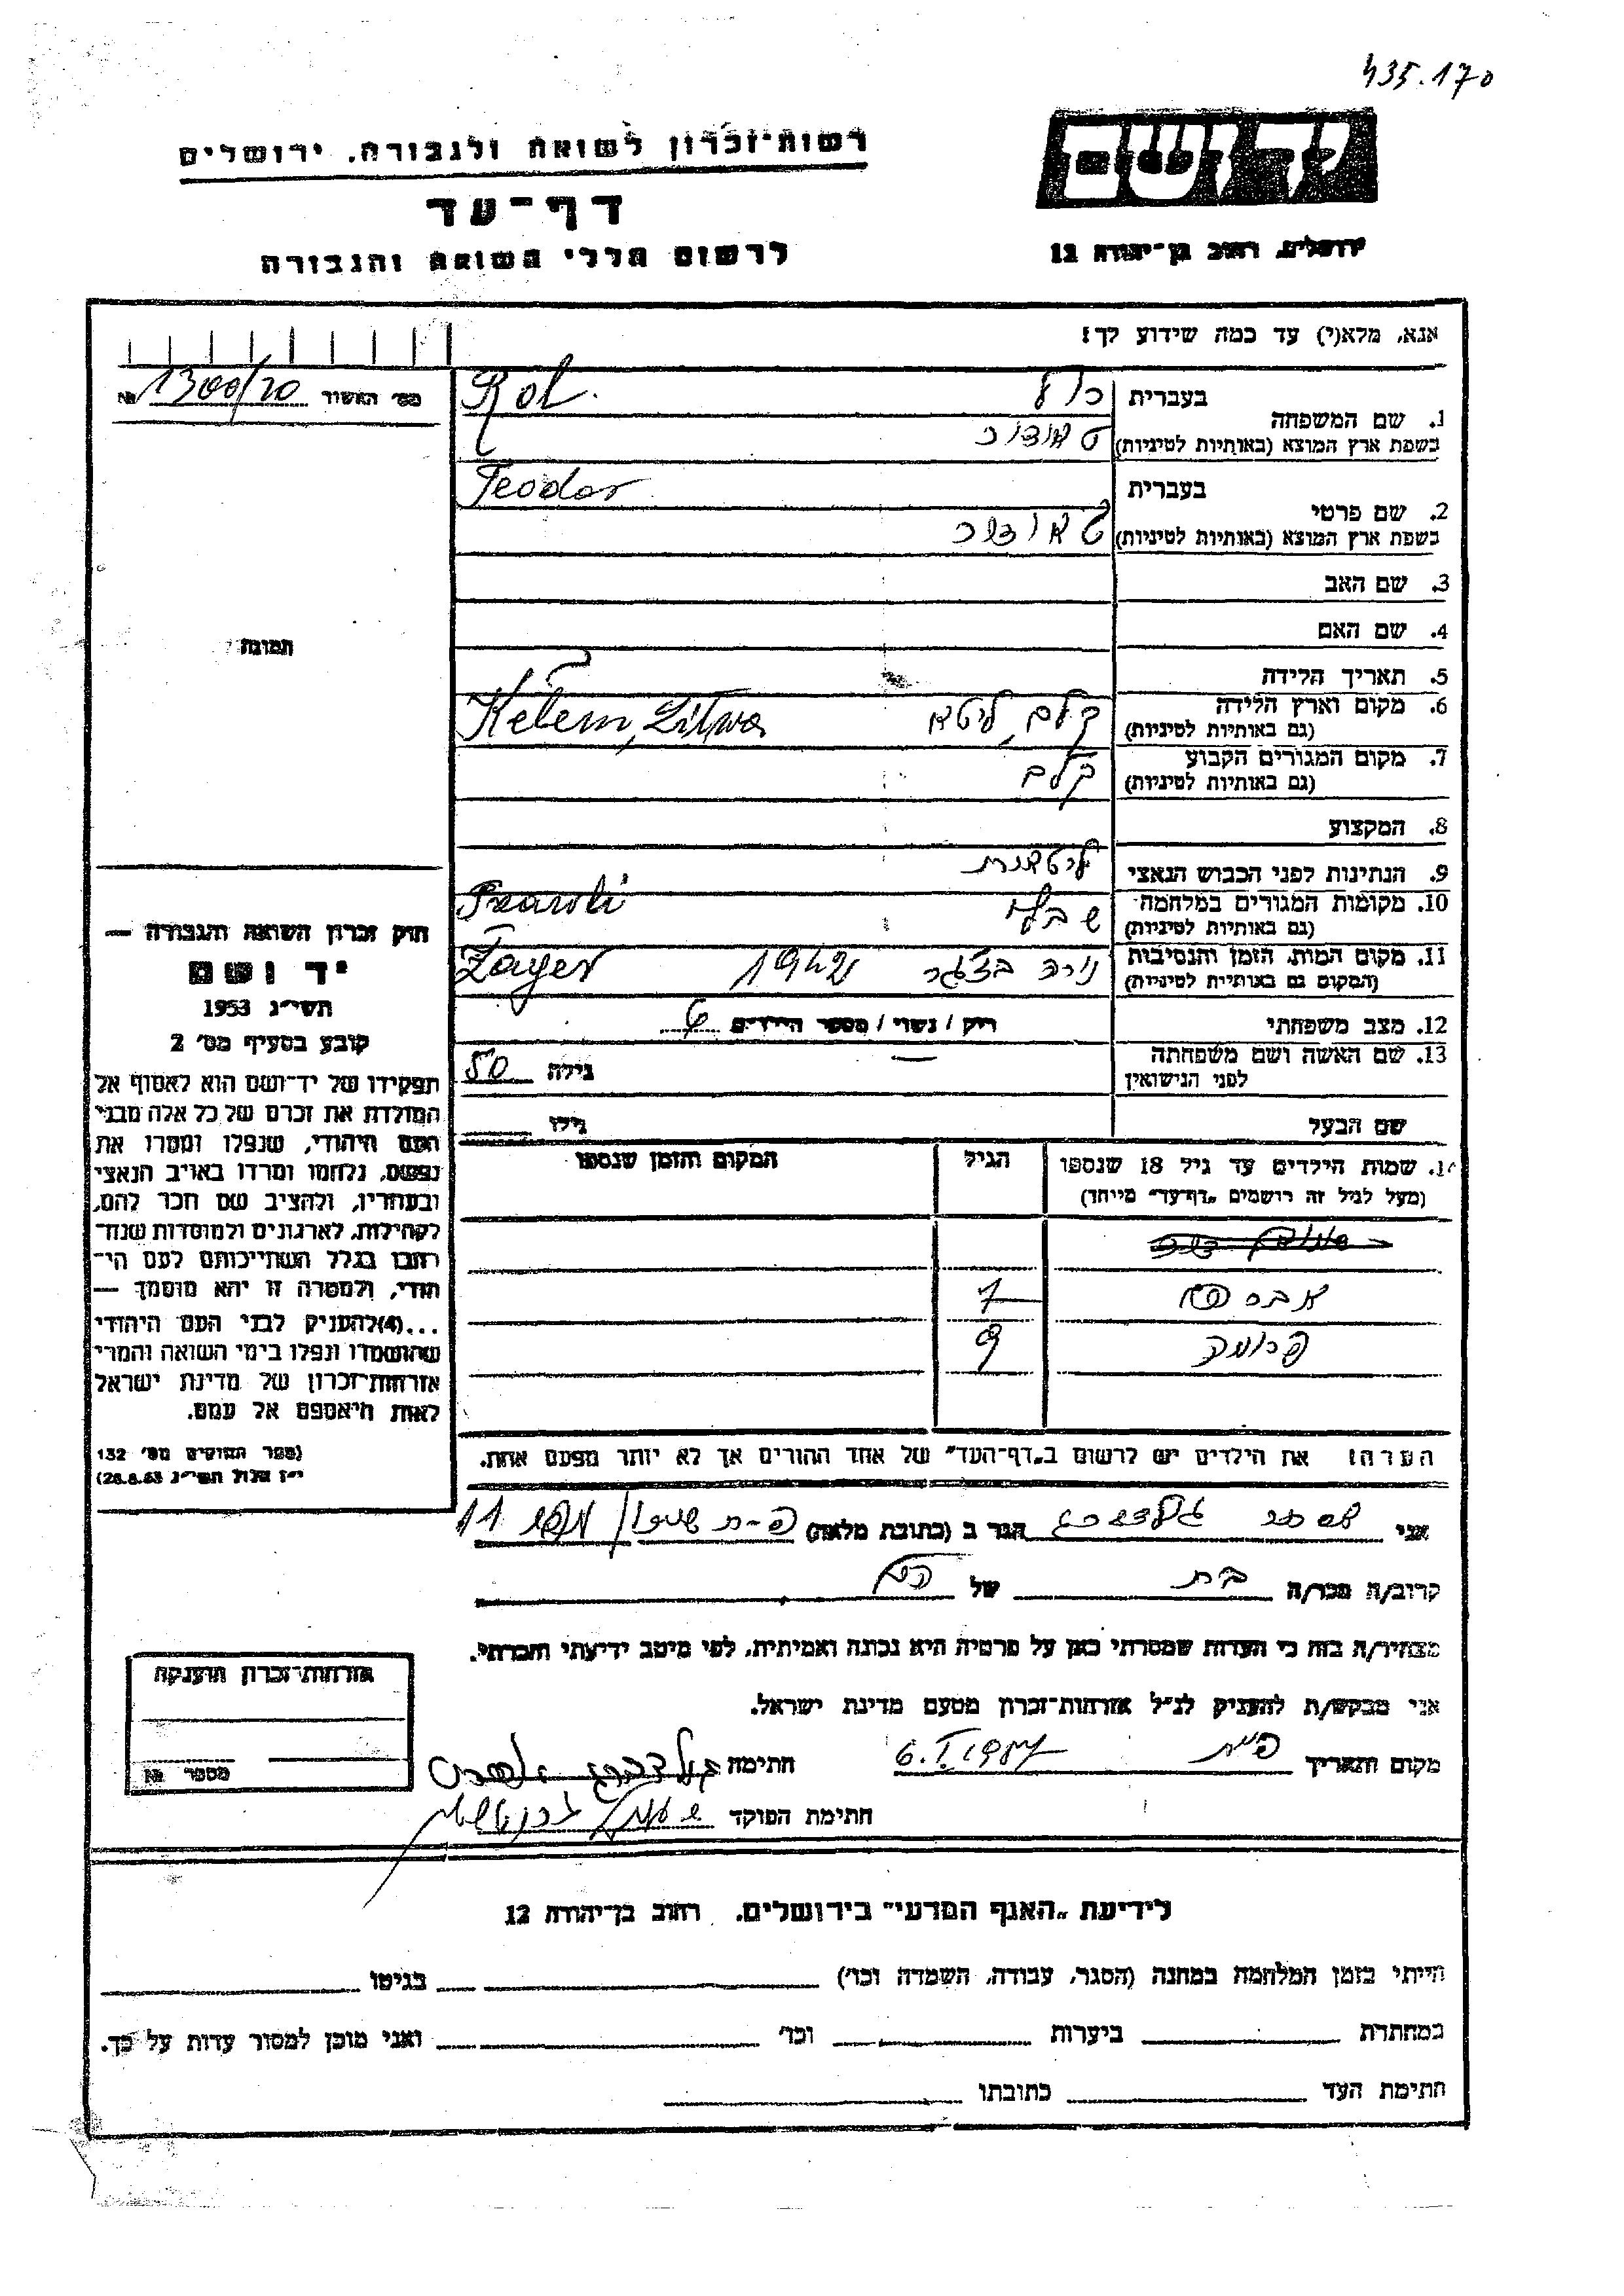 435.170
רשות־זכרון לשואה ולגבורה, ירושלים
דף־עד
לרשום חללי השואה והגבורה
יד ושם
ירושלים, רחוב בן־יהודה 12
אנא, מלא(י) עד כמה שידוע לך!
מס׳ האשור 1300/20 №
1. שם המשפחה בעברית Rol
בשפת ארץ המוצא (באותיות לטיניות)
2. שם פרטי בעברית Teodor
בשפת ארץ המוצא (באותיות לטיניות) טאודור
3. שם האב
4. שם האם
5. תאריך הלידה
6. מקום וארץ הלידה קלם, ליטא Kelem, Litwa
(גם באותיות לטיניות)
7. מקום המגורים הקבוע קלם
(גם באותיות לטיניות)
8. המקצוע
9. הנתינות לפני הכבוש הנאצי ליטאית
10. מקומות המגורים במלחמה
(גם באותיות לטיניות)
11. מקום המות, הזמן והנסיבות 1942 Zager
(המקום גם באותיות לטיניות)
12. מצב משפחתי רווק / נשוי / מספר הילדים 6
13. שם האשה ושם משפחתה — גילה 50
לפני הנישואין
שם הבעל גילו
14. שמות הילדים עד גיל 18 שנספו הגיל המקום והזמן שנספו
(מעל לגיל זה רושמים „דף־עד״ מיוחד)
7
פרומה 9
הערה: את הילדים יש לרשום ב„דף־העד״ של אחד ההורים אך לא יותר מפעם אחת.
תמונה
חוק זכרון השואה והגבורה —
יד ושם
תשי״ג 1953
קובע בסעיף מס׳ 2
תפקידו של יד־ושם הוא לאסוף אל
המולדת את זכרם של כל אלה מבני
העם היהודי, שנפלו ומסרו את
נפשם, נלחמו ומרדו באויב הנאצי
ובעוזריו, ולהציב שם וזכר להם,
לקהילות, לארגונים ולמוסדות שנח־
רבו בגלל השתייכותם לעם הי־
הודי, ולמטרה זו יהא מוסמך —
...(4)להעניק לבני העם היהודי
שהושמדו ונפלו בימי השואה והמרי
אזרחות־זכרון של מדינת ישראל
לאות היאספם אל עמם.
(ספר החוקים מס׳ 132
י״ז אלול תשי״ג 28.8.53)
אני הגר ב (כתובת מלאה) 11
קרוב/ה מכר/ה בת של
מצהיר/ה בזה כי העדות שמסרתי כאן על פרטיה היא נכונה ואמיתית, לפי מיטב ידיעתי והכרתי.
אני מבקש/ת להעניק לנ״ל אזרחות־זכרון מטעם מדינת ישראל.
מקום ותאריך 6.I.1957 חתימה
חתימת הפוקד
אזרחות־זכרון הוענקה
מספר №
לידיעת „האגף המדעי״ בירושלים, רחוב בן־יהודה 12
הייתי בזמן המלחמה במחנה (הסגר, עבודה, השמדה וכו׳) בגיטו
במחתרת ביערות וכו׳ ואני מוכן למסור עדות על כך.
חתימת העד כתובתו